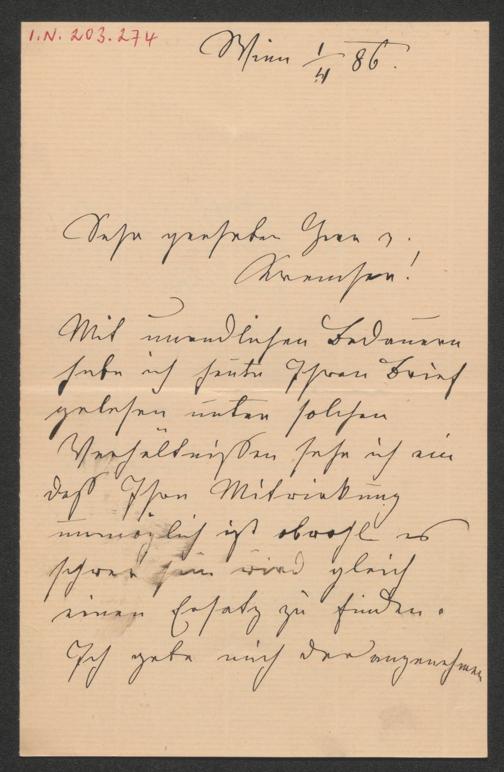 I.N. 203.274
Wien 1/4 86.
Sehr geehrter Herr v.
Kremser!
Mit unendlichen Bedauern
habe ich heute Ihren Brief
gelesen unter solchen
Verhältnissen sehe ich ein
daß Ihre Mitwirkung
unmöglich ist obwohl es
schwer sein wird gleich
einen Ersatz zu finden.
Ich gebe mich der angenehmen